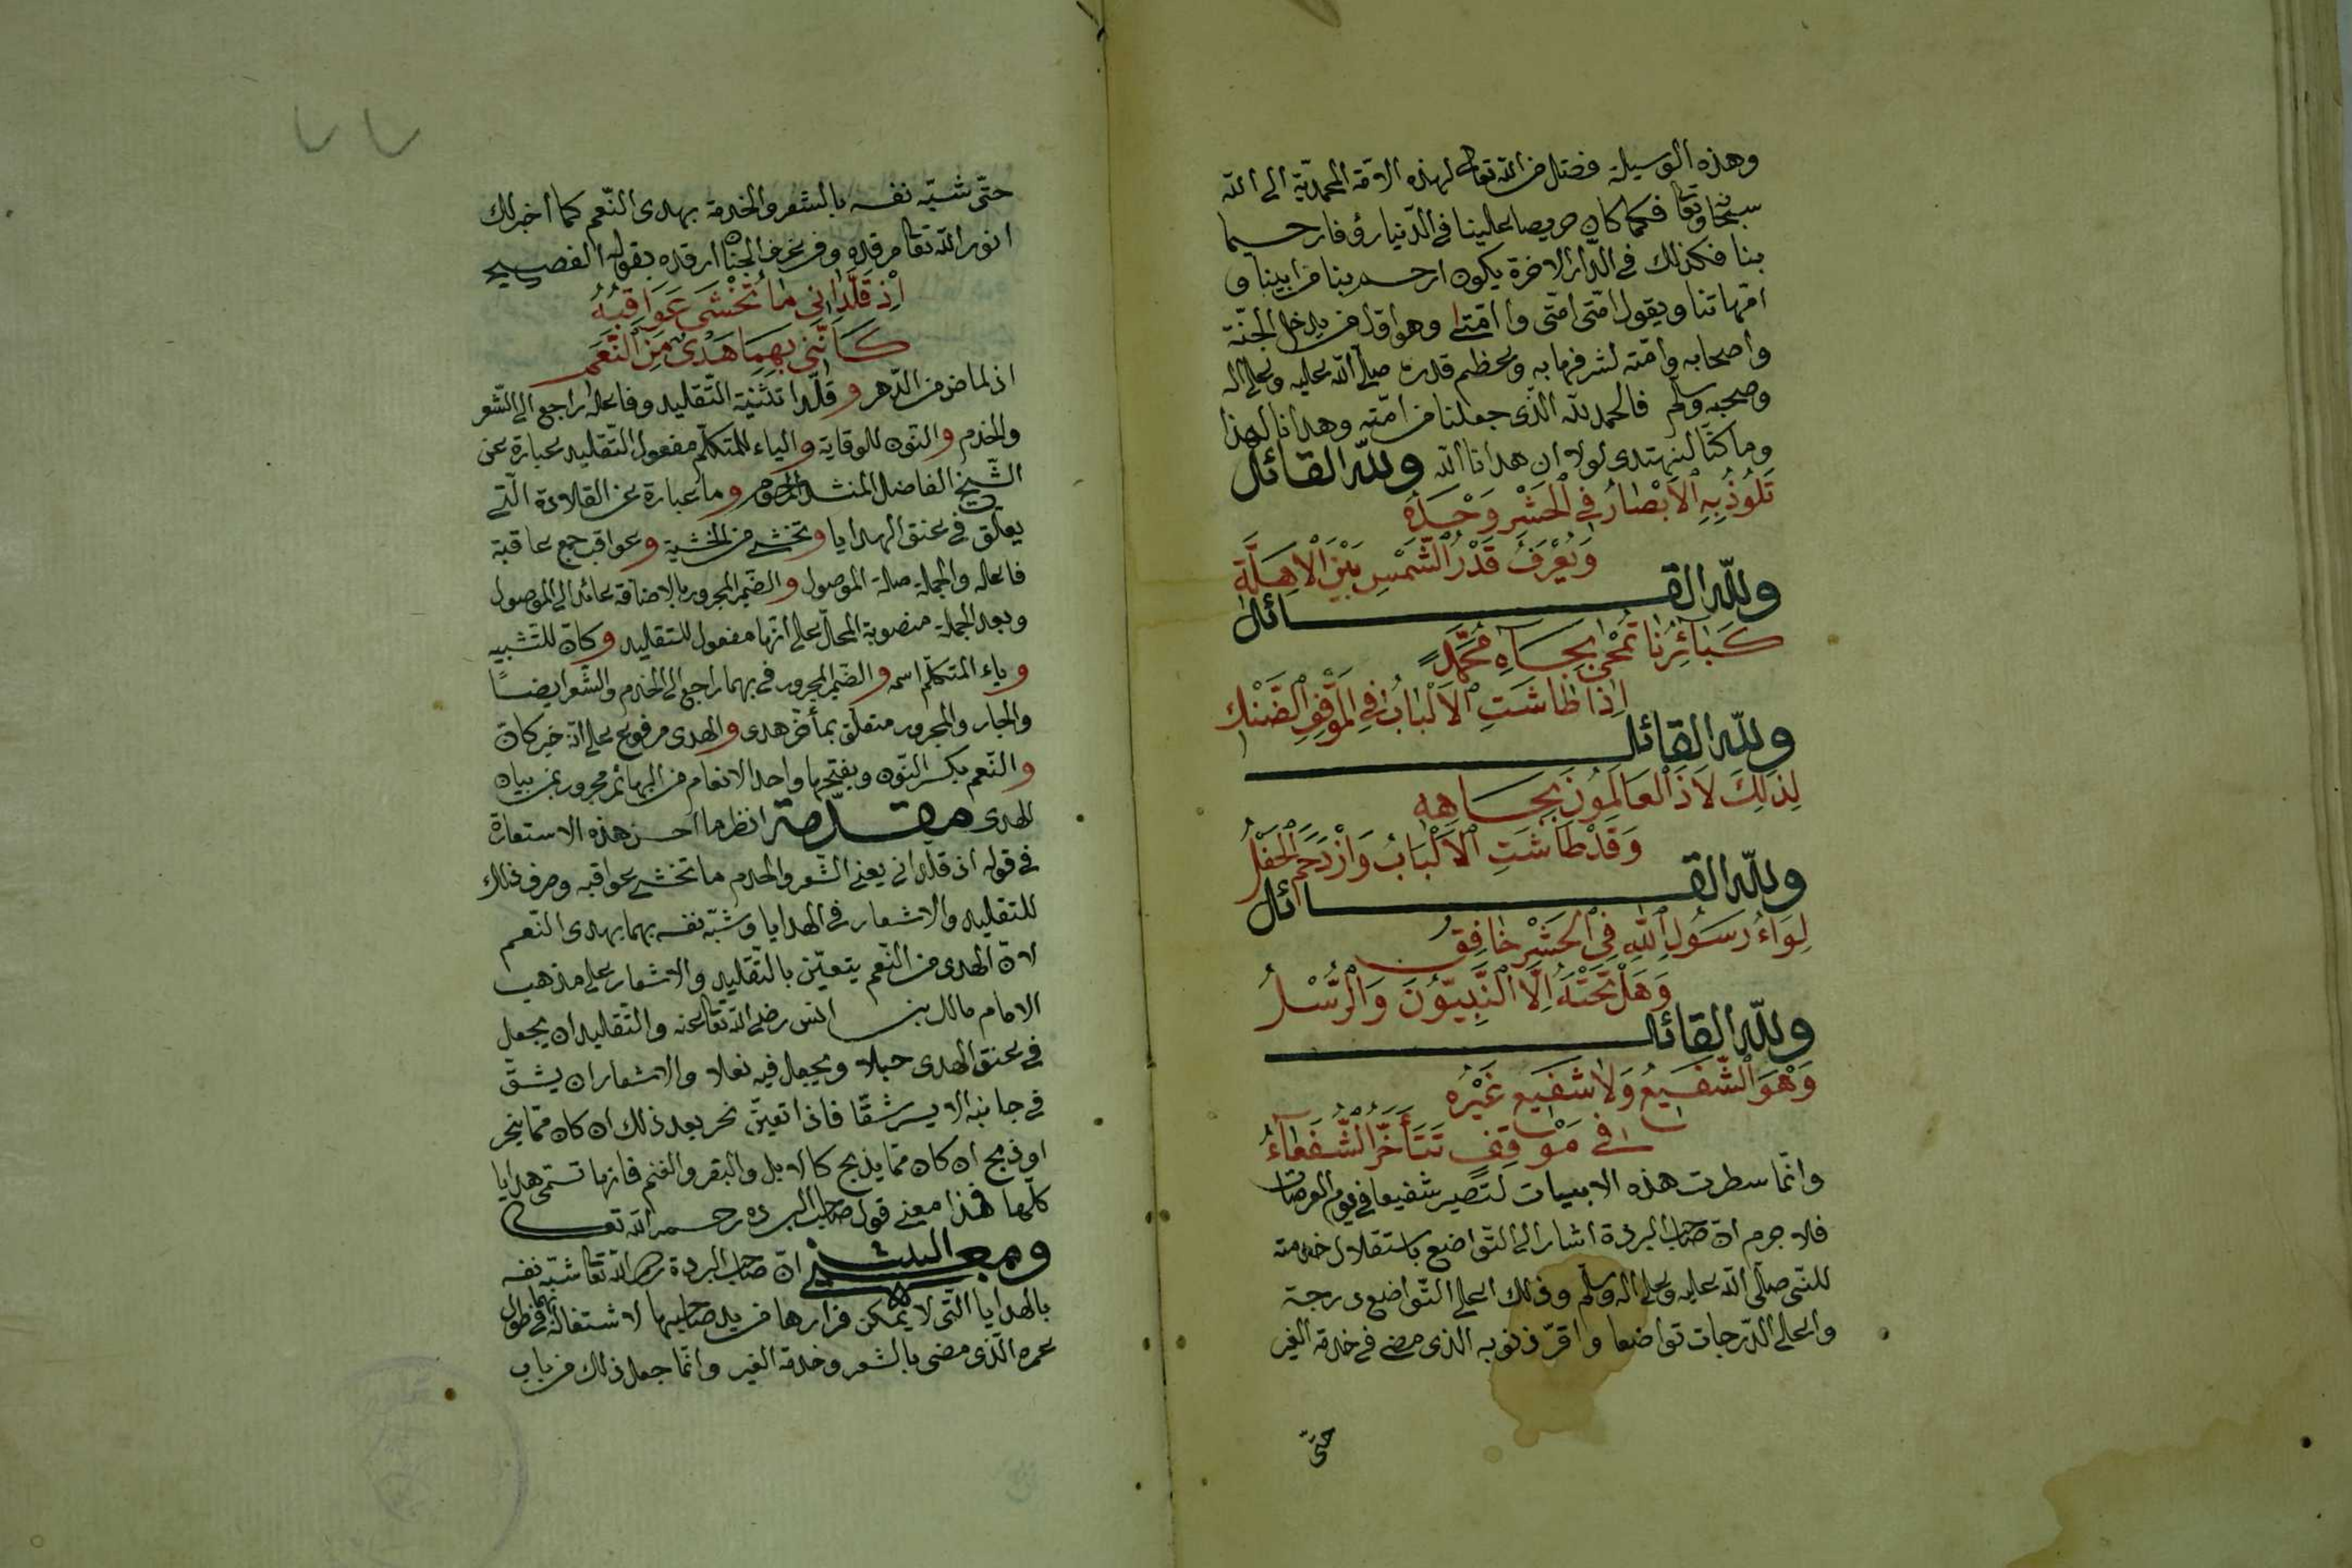 وهذه الوسيلة فضل من الله تعالى لهذه الامة المحمدية الى الله
سبحانه وتعا فكما كان حريصا علينا في الدنيا رؤفا رحيما
بنا فكذلك في الدار الاخرة يكون ارحم بنا من ابينا و
امهاتنا ويقول امتى امتى وا امتى وهو اول من يدخل الجنة
واصحابه وامته لشرفها به وعظم قدره صلى الله عليه وعلى اله
وصحبه وسلم فالحمد لله الذى جعلنا من امته وهدانا لهذا
وما كنا لنهتدى لولا ان هدانا الله ولله القائل
تَلُوذُ بِهِ الْاَبْصَارُ فِي الْحَشْرِ وَحْدَهُ
وَيُعْرَفُ قَدْرُ الشَّمْسِ بَيْنَ الْاَهِلَّةِ
ولله القائل
كَبَائِرُنَا تُمْحٰى بِجَاهِ مُحَمَّدٍ
اِذَا طَاشَتِ الْاَلْبَابُ فِي الْمَوْقِفِ الضَّنْكِ
ولله القائل
لِذٰلِكَ لَاذَ الْعَالَمُونَ بِجَاهِهِ
وَقَدْ طَاشَتِ الْاَلْبَابُ وَازْدَحَمَ الْحَفْلُ
ولله القائل
لِوَاءُ رَسُولِ اللهِ فِي الْحَشْرِ خَافِقٌ
وَهَلْ تَحْتَهُ اِلَّا النَّبِيُّونَ وَالرُّسْلُ
ولله القائل
وَهْوَ الشَّفِيعُ وَلَا شَفِيعَ غَيْرُهُ
فِي مَوْقِفٍ تَتَأَخَّرُ الشُّفَعَاءُ
وانما سطرت هذه الابيات لتصير شفيعا في يوم العرصات
فلا جرم ان صاحب البردة اشار الى التواضع باستقلال خدمته
للنبى صلى الله عليه وعلى اله وسلم وذلك اعلى التواضع درجة
واعلى الدرجات تواضعا واقر ذنوبه الذى مضى في خدمة الغير
حتى
٧٧
حتى شبه نفسه بالشعر والخدمة بهدى النعم كما أخبر لك
نور الله تعا مرقده وفي غرف الجنان ارقده بقوله الفصيح
اِذْ قَلَّدَانِيَ مَا تُخْشٰى عَوَاقِبُهُ
كَاَنَّنِي بِهِمَا هَدْيٌ مِنَ النَّعَمِ
اذ لما من الدهر وقلدا تثنية التقليد وفاعله راجع الى الشعر
والخدم والنون للوقاية والياء للمتكلم مفعول التقليد عبارة عن
الشيخ الفاضل المنشد المرحوم وما عبارة عن القلادة التى
يعلق في عنق الهدايا وتخشى من الخشية وعواقب جمع عاقبة
فاعله والجملة صلة الموصول والضمير المجرور بالاضافة عائد الى الموصول
وبعد الجملة منصوبة المحل على انها مفعول للتقليد وكان للتشبيه
وياء المتكلم اسمه والضمير المجرور في بهما راجع الى الخدم والشعر ايضا
والجار والمجرور متعلق بمأخر هدى والهدى مرفوع على انه خبر كان
والنعم بكسر النون وبفتحها واحد الانعام من البهائم مجرور بمن بيان
الهدى مقدمة انظر ما احسن هذه الاستعارة
في قوله اذ قلدانى يعنى الشعر والخدم ما تخشى عواقبه وصرف ذلك
للتقليد والاشعار في الهدايا وشبه نفسه بهما بهدى النعم
لان الهدى من النعم يتعين بالتقليد والاشعار على مذهب
الامام مالك بن انس رضى الله تعا عنه والتقليد ان يجعل
في عنق الهدى حبلا ويجعل فيه نعلا والاشعار ان يشق
في جانبه الايسر شقا فاذا تعين نحر بعد ذلك ان كان مما ينحر
او ذبح ان كان مما يذبح كالابل والبقر والغنم فانها تسمى هدايا
كلها فهذا معنى قول صاحب البردة رحمه الله تعالى
ومعنى البيت ان صاحب البردة رحمه الله تعا شبه نفسه
بالهدايا التى لا يمكن فرارها من يد صاحبها لاشتغاله بهما في طول
عمره الذى مضى بالشعر وخدمة الغير وانما جعل ذلك من باب